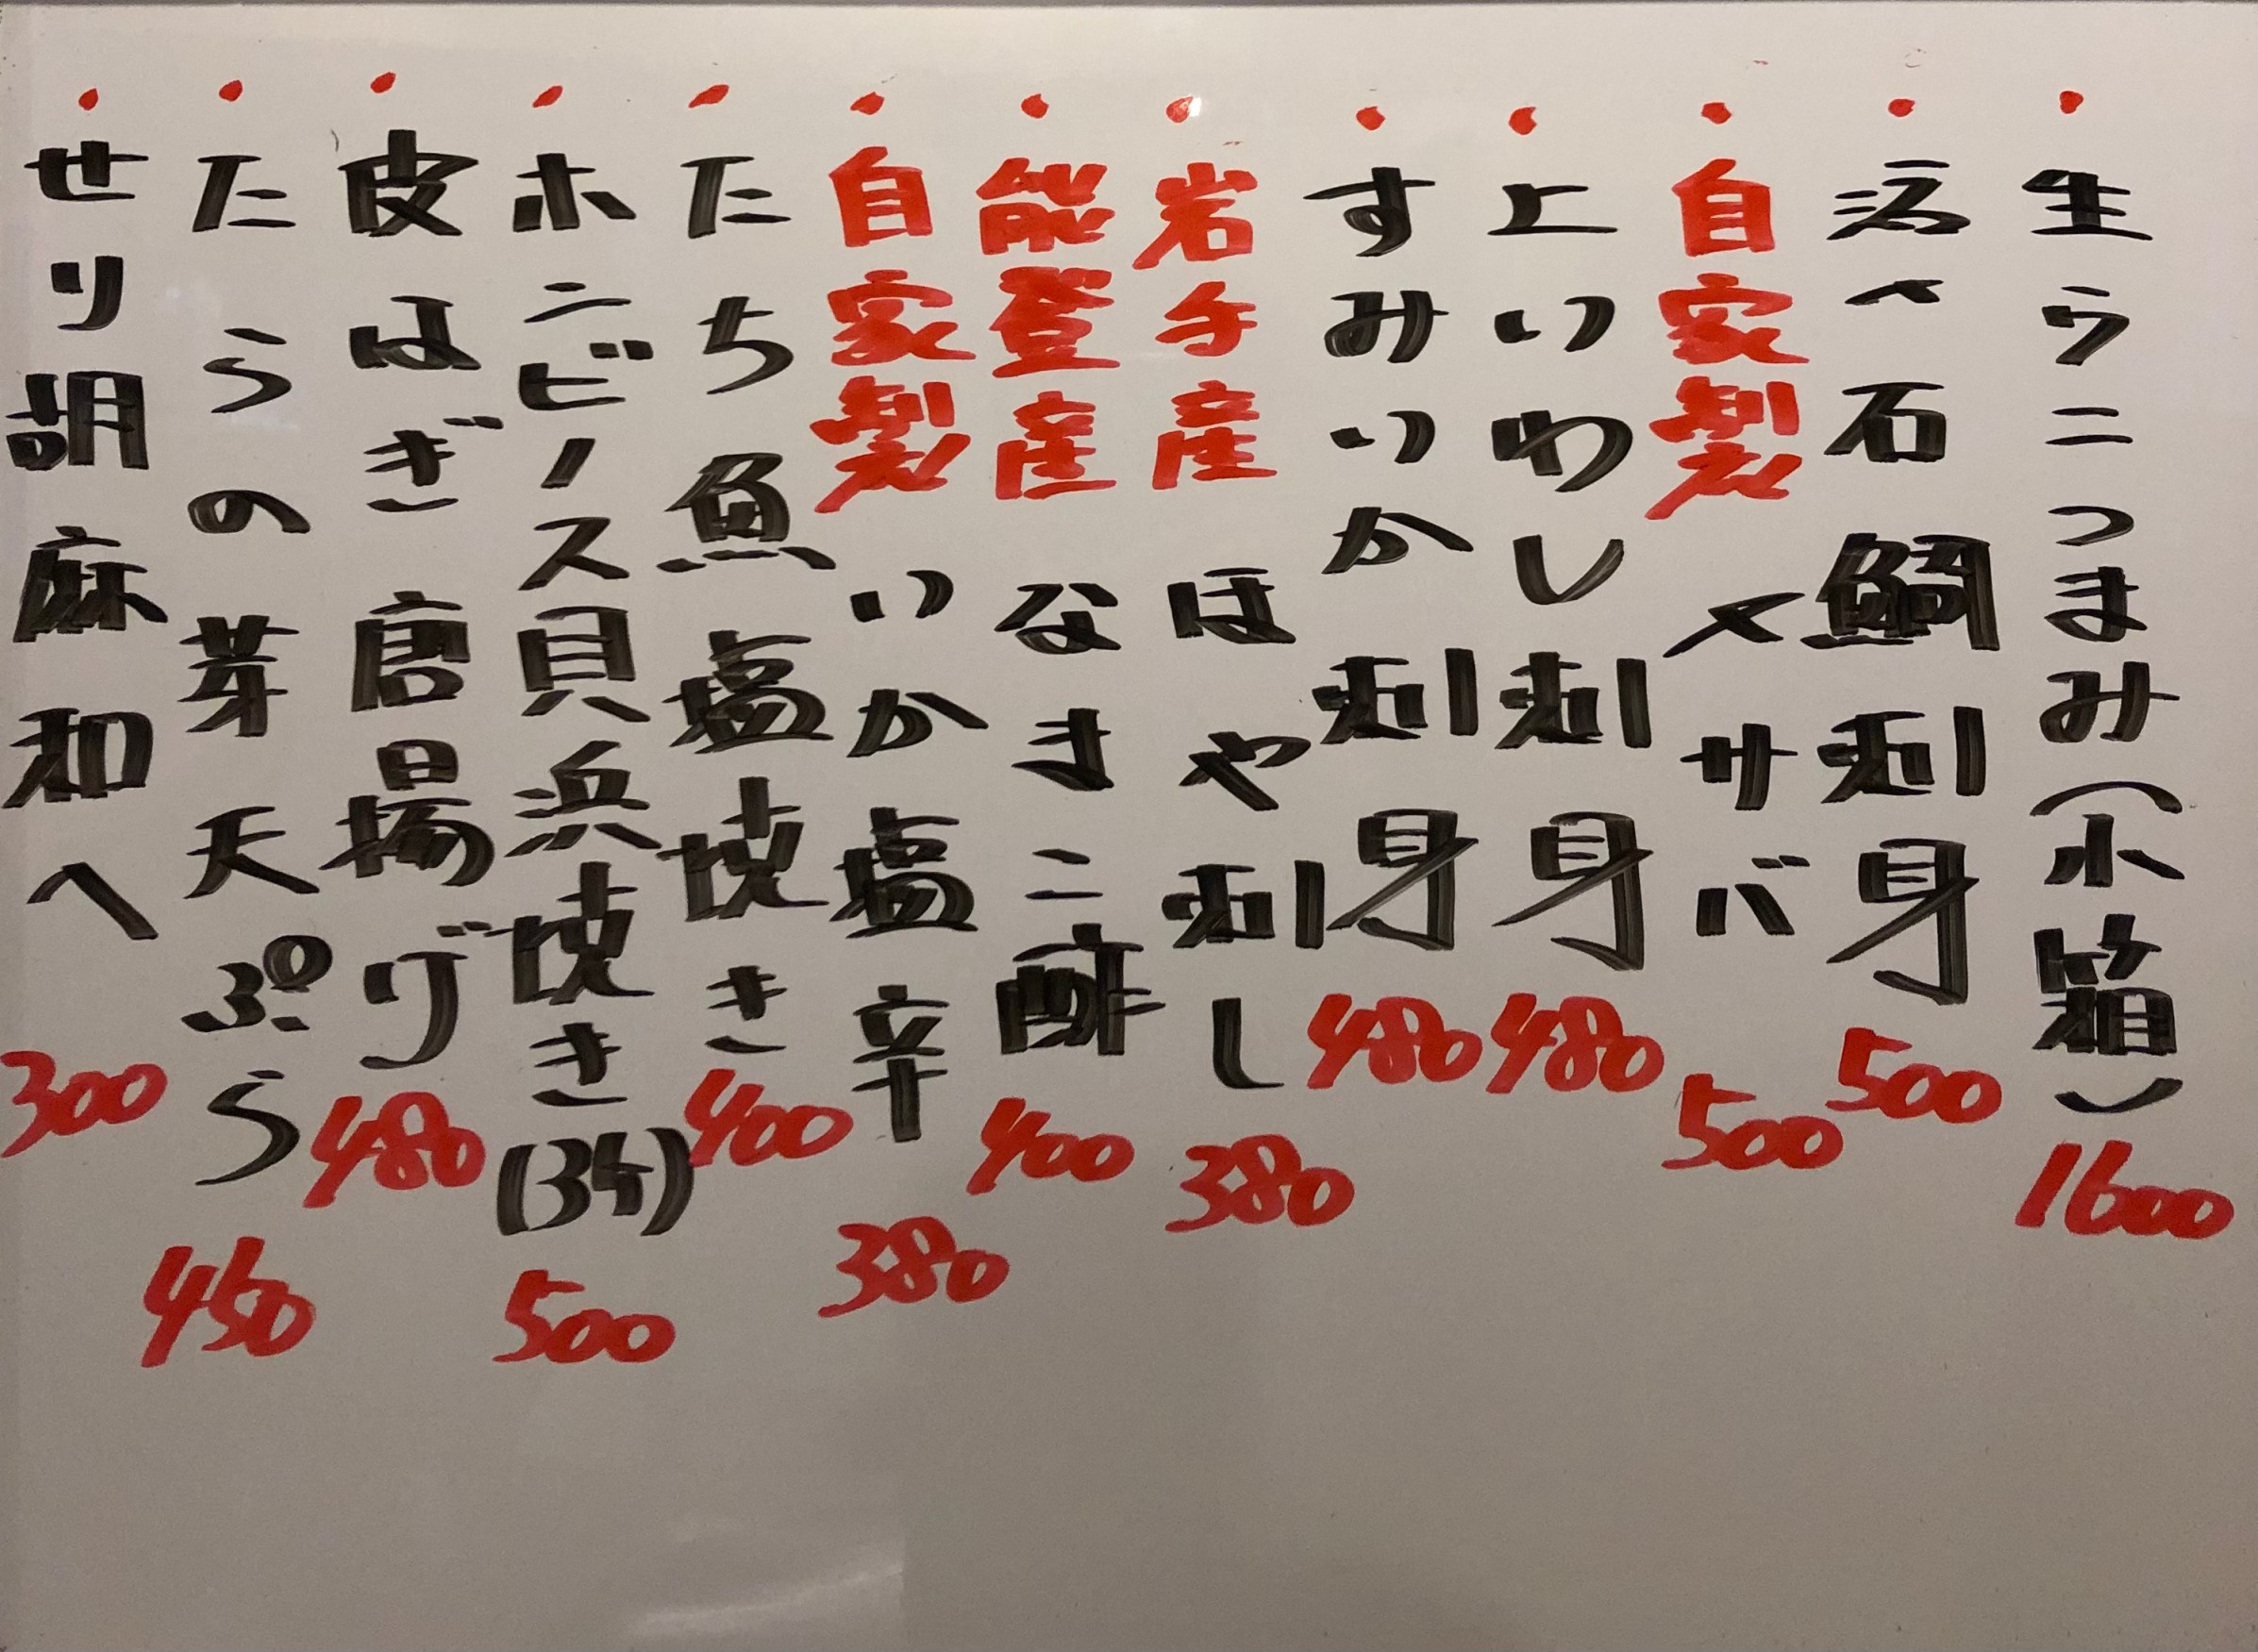 ・生ウニつまみ(小箱) 1600
・活〆石鯛刺身 500
・自家製 〆サバ 500
・上いわし刺身 480
・すみいか刺身 480
・岩手産 ほや刺し 380
・能登産 なまこ酢 400
・自家製 いか塩辛 380
・たち魚塩焼き 400
・ホンビノス貝浜焼き(3ケ) 500
・皮はぎ唐揚げ 480
・たらの芽天ぷら 450
・せり胡麻和へ 300